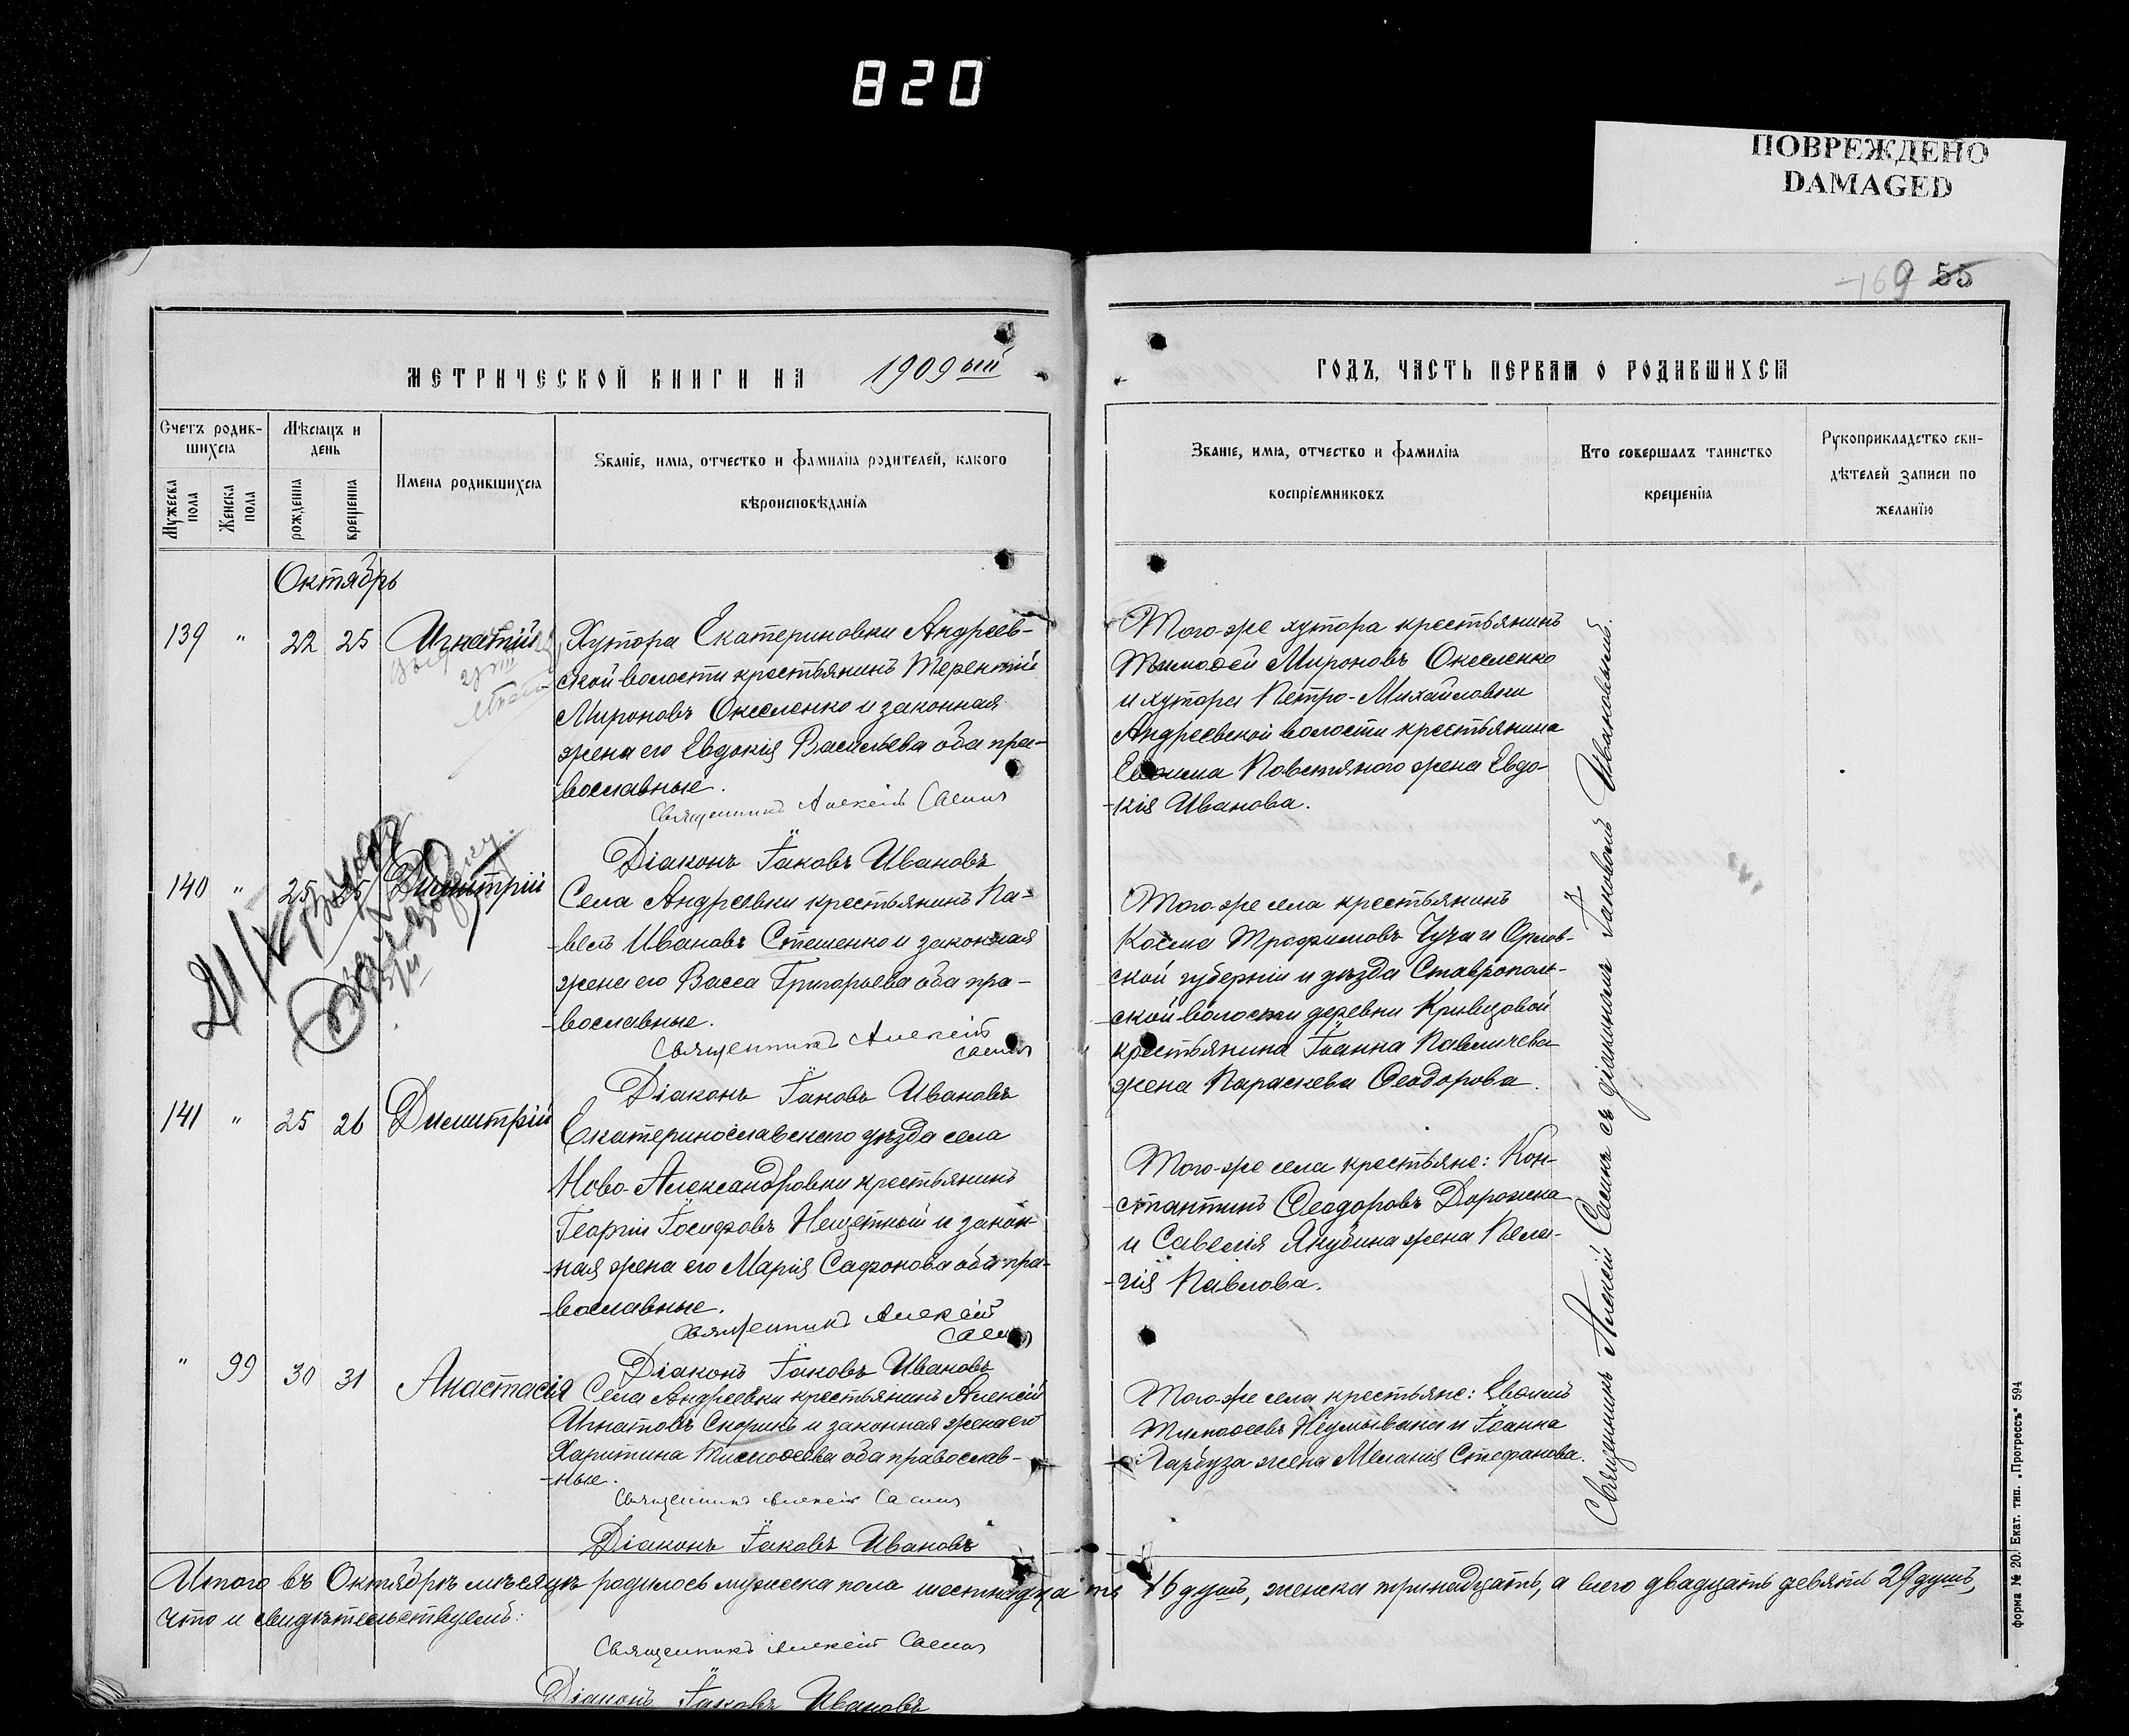 820
ПОВРЕЖДЕНО
DAMAGED
169 55
МЕТРИЧЕСКОЙ КНИГИ НА 1909ый
ГОДЪ, ЧАСТЬ ПЕРВАЯ О РОДИВШИХСЯ
Счетъ родив-
шихся
Мужеска пола
Женска пола
Мѣсяцъ и
день
рожденія
крещенія
Имена родившихся
Званіе, имя, отчество и фамилія родителей, какого
вѣроисповѣданія
Званіе, имя, отчество и фамилія
воспріемниковъ
Кто совершалъ таинство
крещенія
Рукоприкладство сви-
дѣтелей записи по
желанію
Октябрь
139 " 22 25 Игнатій
Хутора Екатериновки Андреев-
ской волости крестьянинъ Терентій
Мироновъ Окселенко и законная
жена его Евдокія Васильева оба пра-
вославные.
Священникъ Алексій
Діаконъ Іаковъ Ивановъ
Того-же хутора крестьянинъ
Тимоѳей Мироновъ Окселенко
и хутора Петро-Михайловки
Андреевской волости крестьянина
Евѳима Повстяного жена Евдо-
-кія Иванова.
140 " 25 25 Димитрій
Села Андреевки крестьянинъ Па-
-велъ Ивановъ Стешенко и законная
жена его Васса Григорьева оба пра-
-вославные.
Священникъ Алексій
Діаконъ Іаковъ Ивановъ
Того-же села крестьянинъ
Косма Трофимовъ Чуча и Орлов-
ской губерніи и уѣзда Ставрополь-
-ской волости деревни Кривцовой
крестьянина Іоанна Павличева
жена Параскева Ѳеодорова.
141 " 25 26 Димитрій
Екатеринославскаго уѣзда села
Ново-Александровки крестьянинъ
Георгій Іосифовъ Нещетный и закон-
-ная жена его Марія Сафонова оба пра-
-вославные.
Священникъ Алексій
Діаконъ Іаковъ Ивановъ
Того-же села крестьяне: Кон-
-стантинъ Ѳеодоровъ Дорожка
и Савелія Якубина жена Пела-
-гія Павлова.
" 99 30 31 Анастасія
Села Андреевки крестьянинъ Алексій
Игнатовъ Скорикъ и законная жена его
Харитина Тимоѳеева оба православ-
-ные.
Священникъ Алексій
Діаконъ Іаковъ Ивановъ
Того-же села крестьяне: Евѳимій
Тимоѳеевъ Неумывака и Іоанна
Гарбуза жена Меланія Стефанова.
Священникъ Алексій съ діакономъ Іаковомъ Ивановымъ.
Итого въ Октябрѣ мѣсяцѣ родилось мужеска пола шестнадцать 16 душъ, женска тринадцать, а всего двадцать девять 29 душъ,
что и свидѣтельствуемъ:
Священникъ Алексій
Діаконъ Іаковъ Ивановъ
форма № 20. Екат. тип. „Прогрессъ" 594